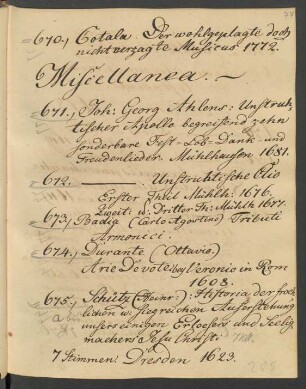 670., Cotala: Der wohlgeplagte doch
nicht verzagte Musicus 1772.
Miscellanea.
671., Joh: Georg Ahlens: Unstrut-
tischer Apollo begreifend zehn
sonderbare Fest-Lob-Dank- und
Freudenlieder. Mühlhausen 1681.
672. Unstruttische Clio
Erster Theil Mühlh: 1676.
Zweit: u. Dritter Th: Mühlh 1677.
673., Badia (Carlo Agostino) Tributi
Armonici.
674., Durante (Ottavio)
Arie Devote in Rom
1608.
675., Schütz (Heinr:) : Historia der froe-
lichen u. siegreichen Auferstehung
unsers einigen Erloesers und Seelig
machers Jesu Christi
7 Stimmen. Dresden 1623.